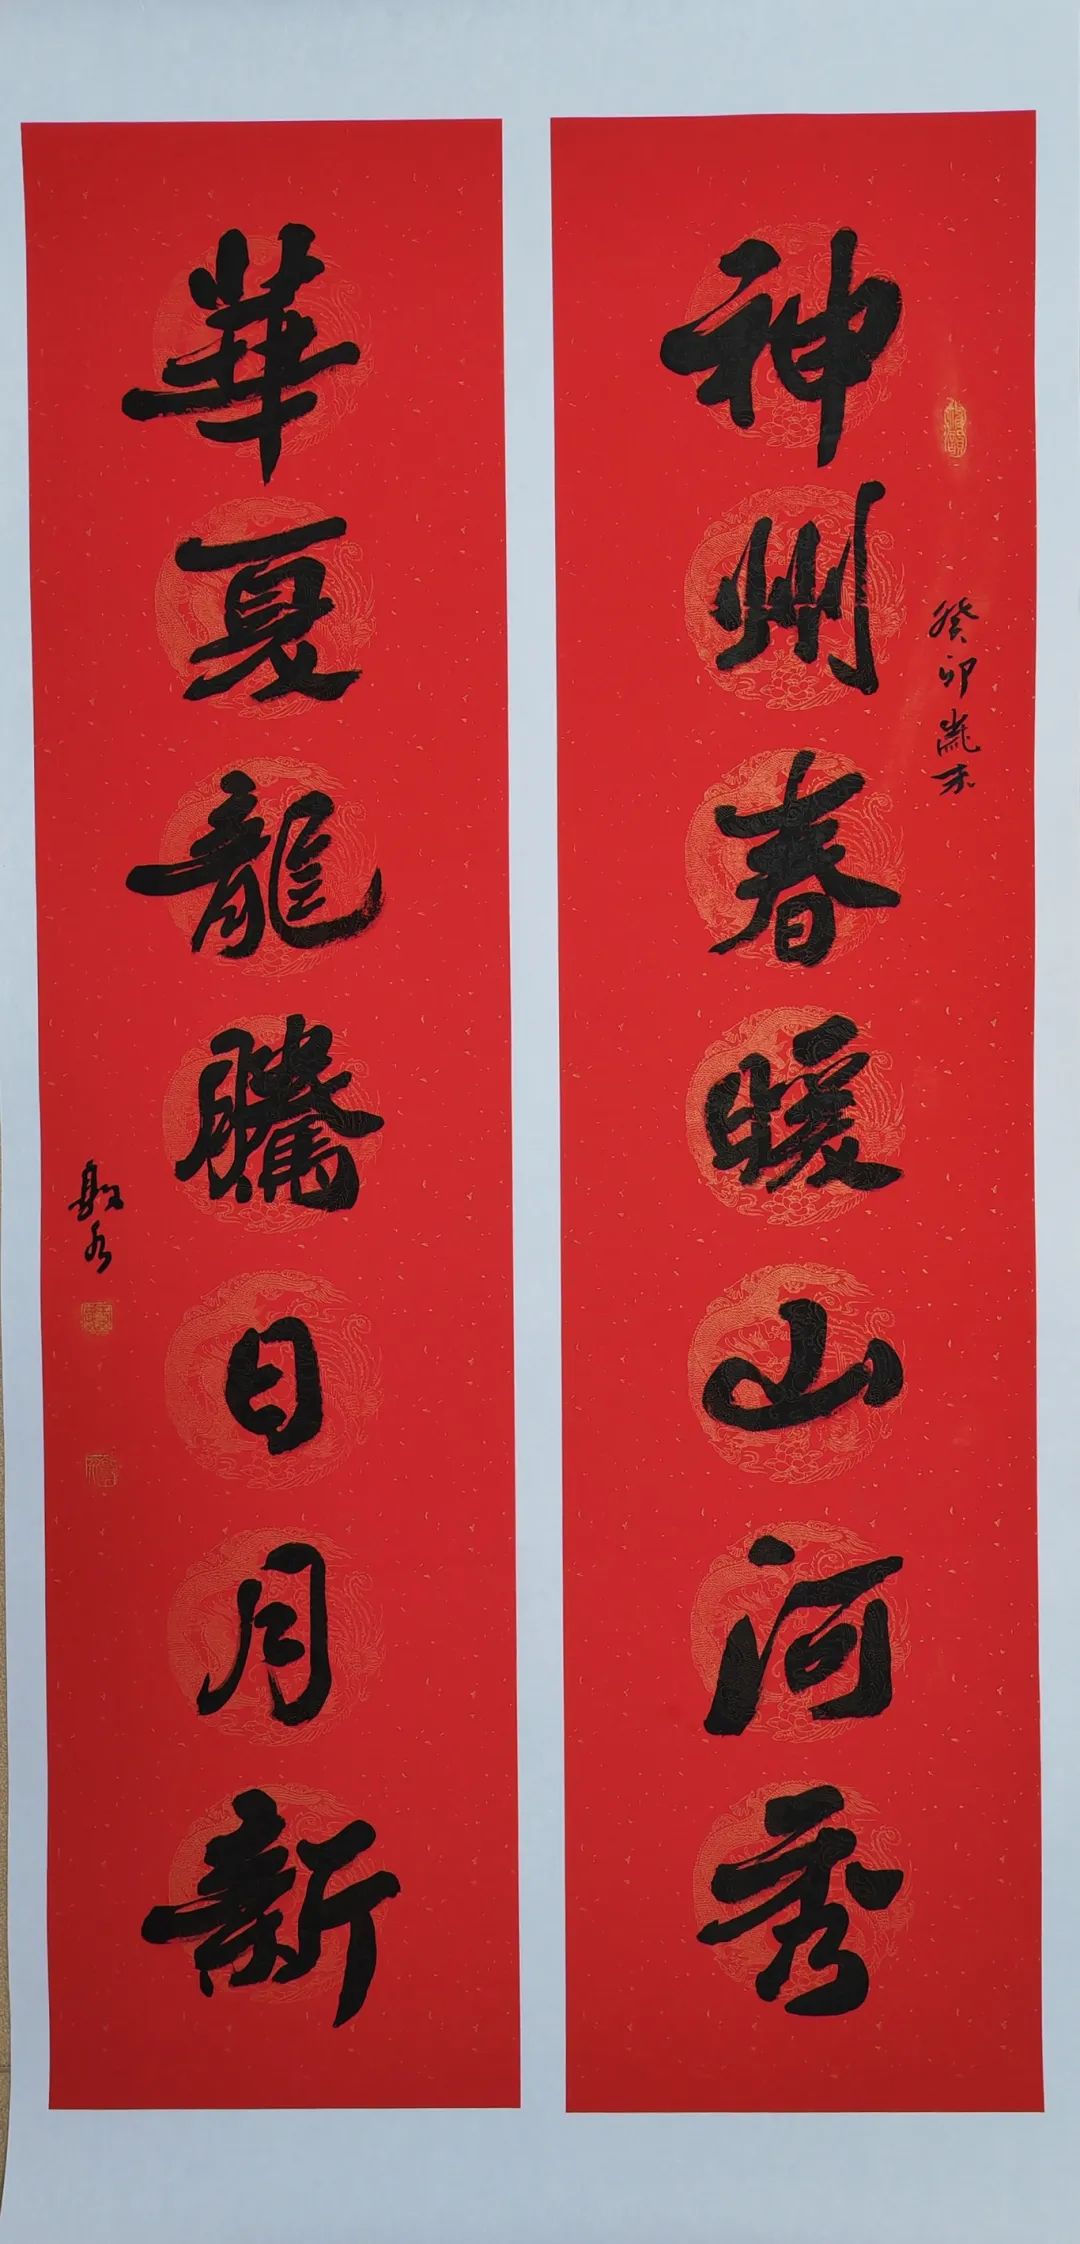 神州春暖山河秀
癸卯歲末
華夏龍騰日月新